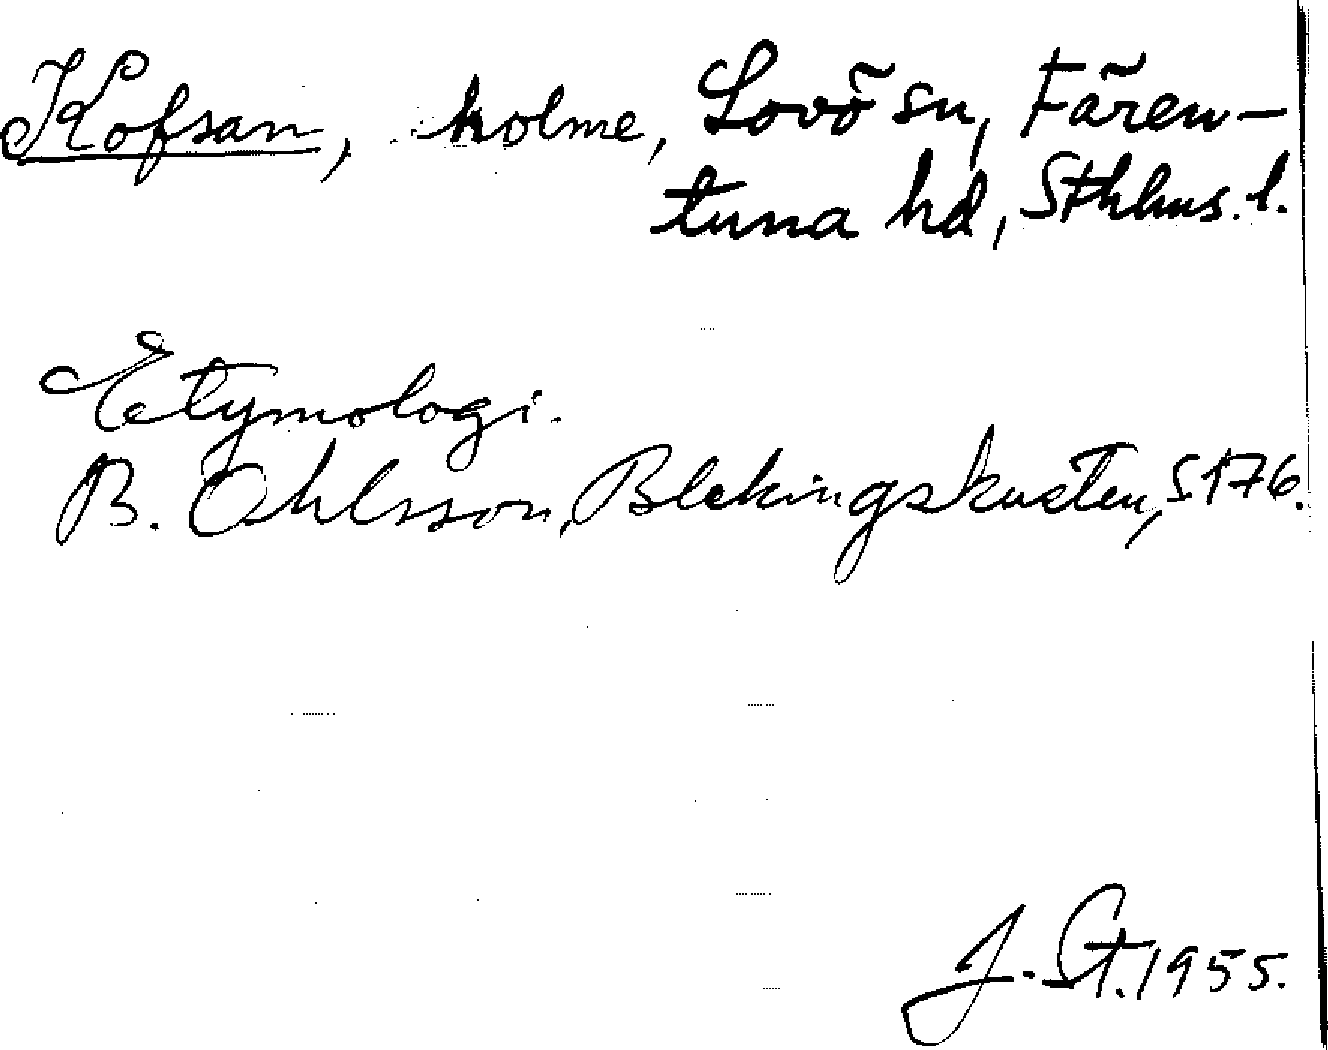 Kofsan, holme, Lovö sn, Fären-
tuna hd, Sthlms. l.
Etymologi.
B. Ohlsson, Blekingskusten, s 176.
J. St. 1955.